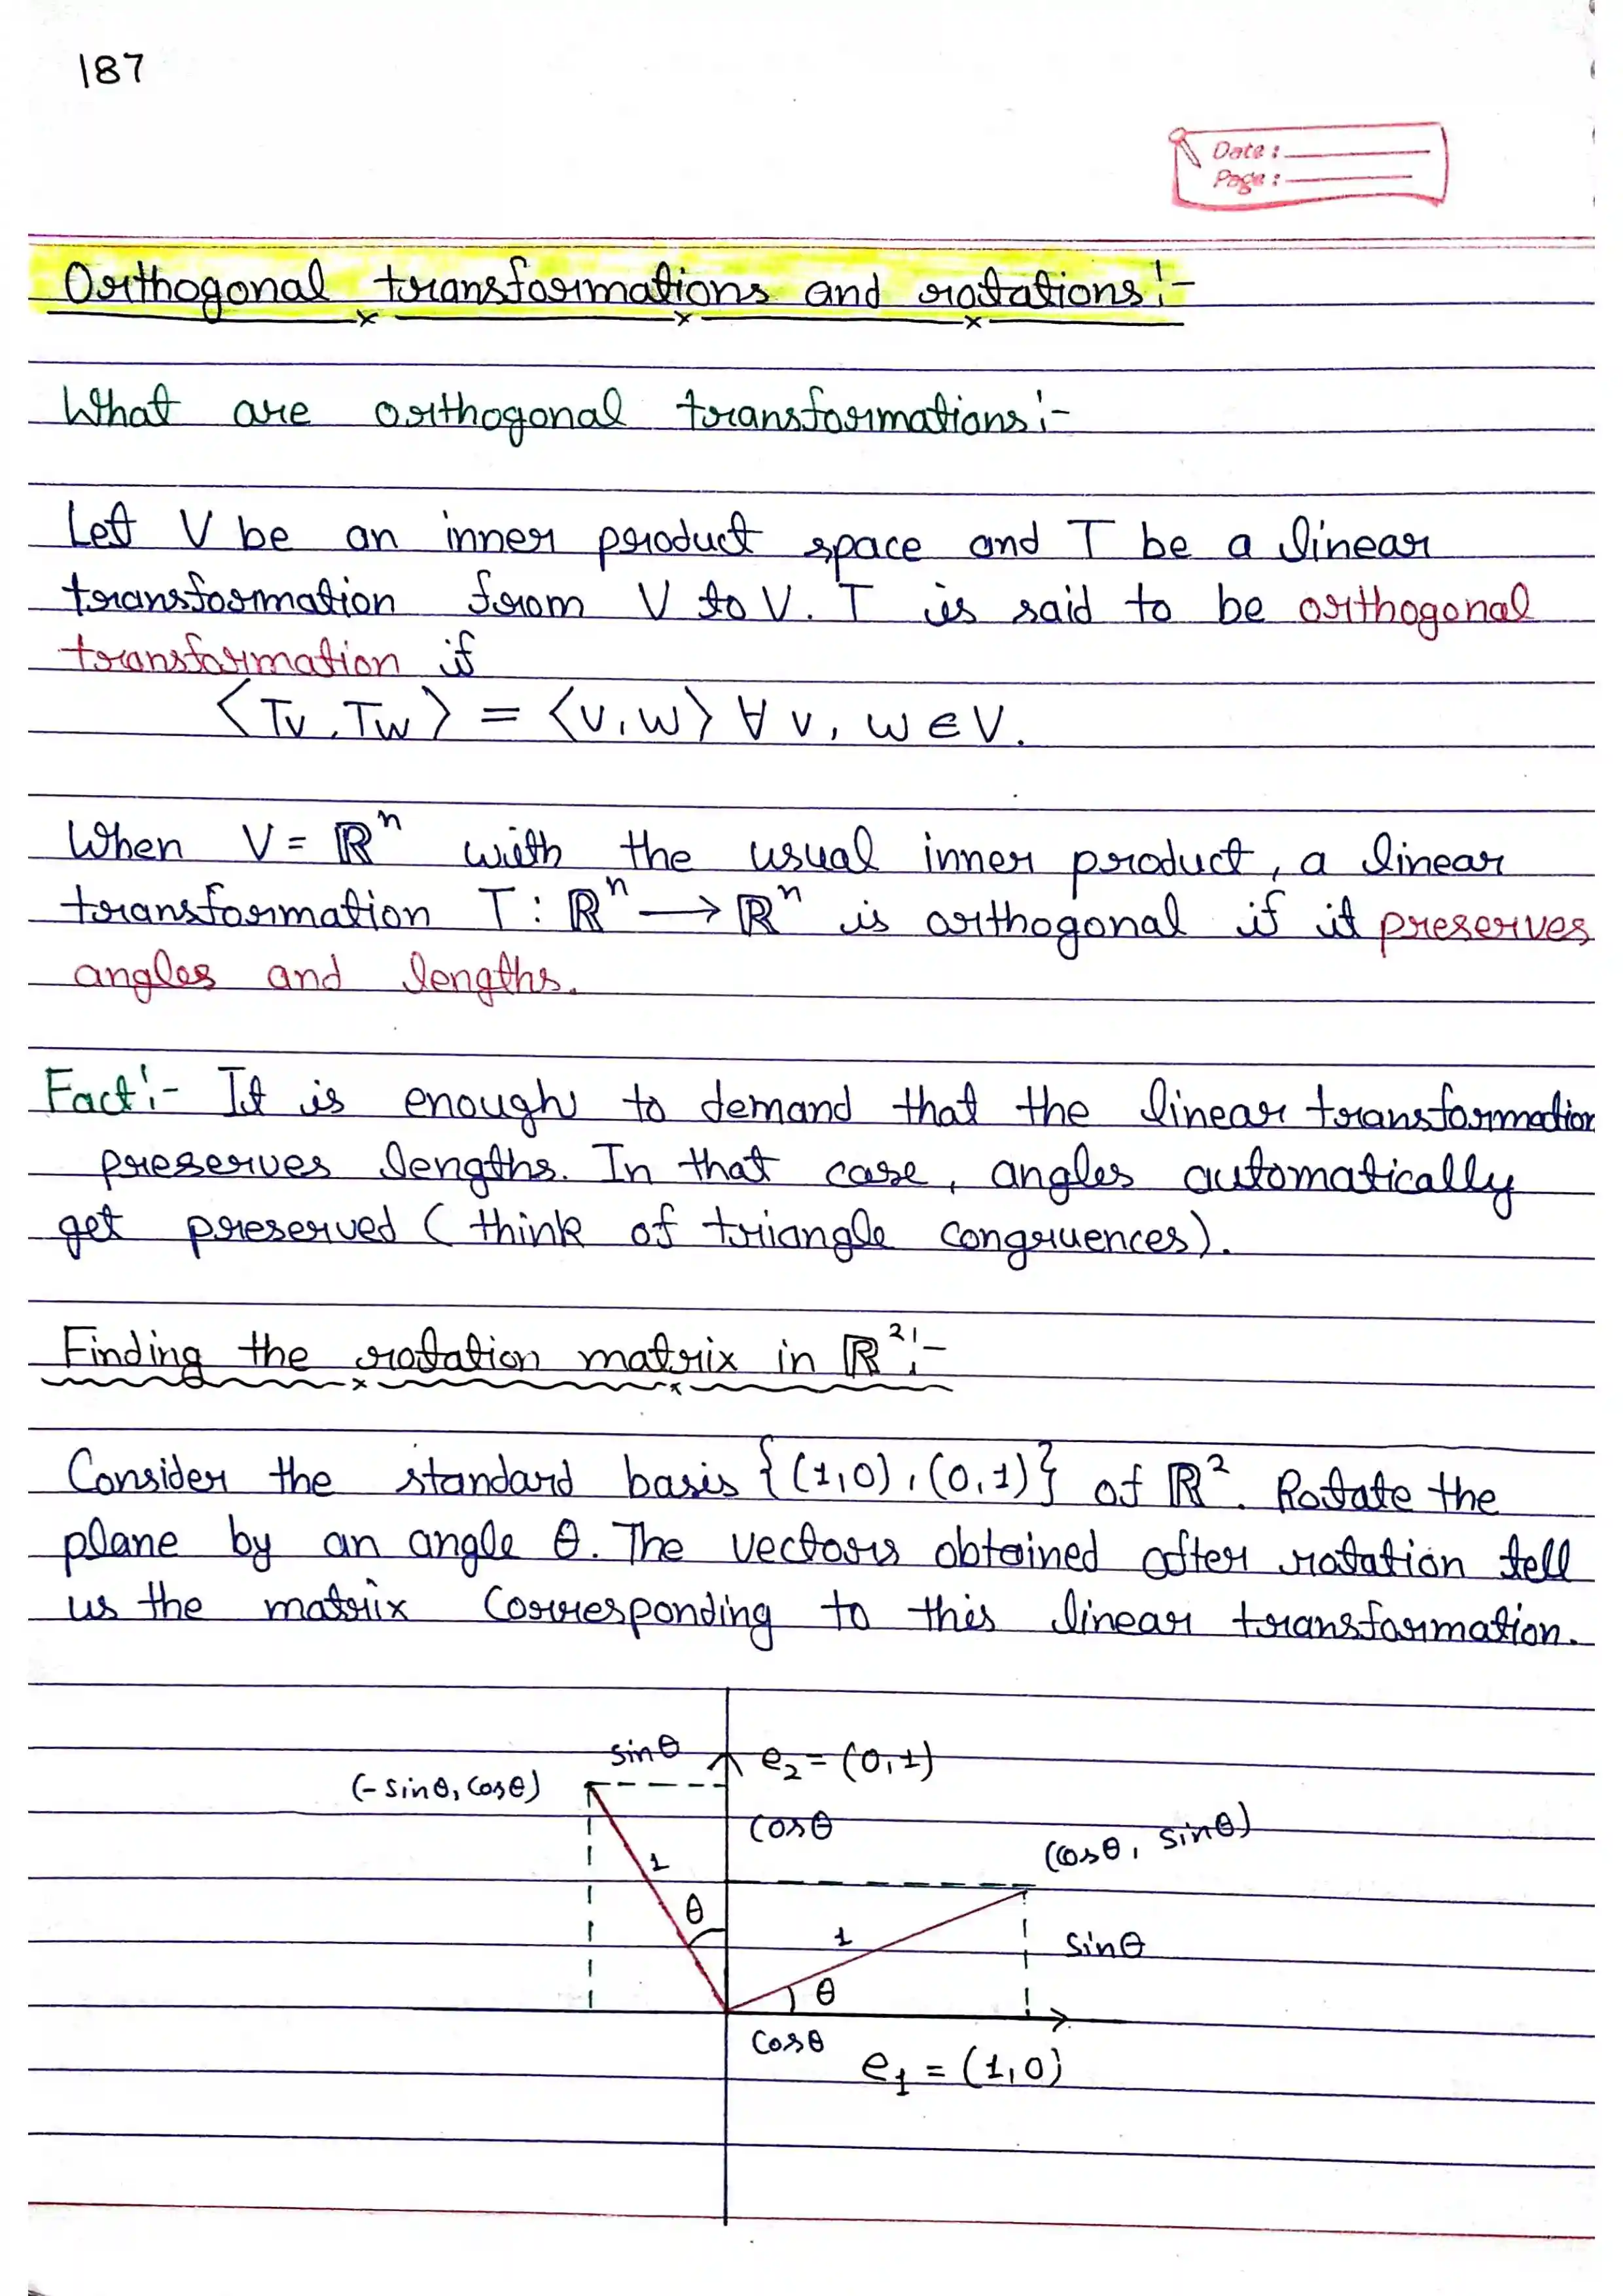 187
Date :
Page :
Orthogonal transformations and rotations:-
What are orthogonal transformations:-
Let V be an inner product space and T be a linear
transformation from V to V. T is said to be orthogonal
transformation if
⟨Tv, Tw⟩ = ⟨v, w⟩ ∀ v, w ∈ V.
When V = ℝⁿ with the usual inner product, a linear
transformation T : ℝⁿ → ℝⁿ is orthogonal if it preserves
angles and lengths.
Fact:- It is enough to demand that the linear transformation
preserves lengths. In that case, angles automatically
get preserved (think of triangle congruences).
Finding the rotation matrix in ℝ²:-
Consider the standard basis {(1,0), (0,1)} of ℝ². Rotate the
plane by an angle θ. The vectors obtained after rotation tell
us the matrix corresponding to this linear transformation.
sinθ
e₂ = (0,1)
(-sinθ, cosθ)
cosθ
(cosθ, sinθ)
1
θ
1
sinθ
θ
cosθ
e₁ = (1,0)